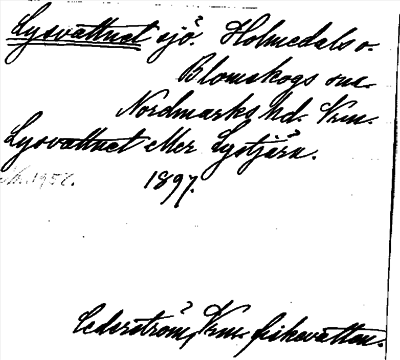 Lysvattnet sjö. Holmedals o.
Blomskogs snr
Nordmarks hd. Vrm.
Lysvattnet eller Lystjärn.
1897.
Cederström, Vrm. fiskevatten.